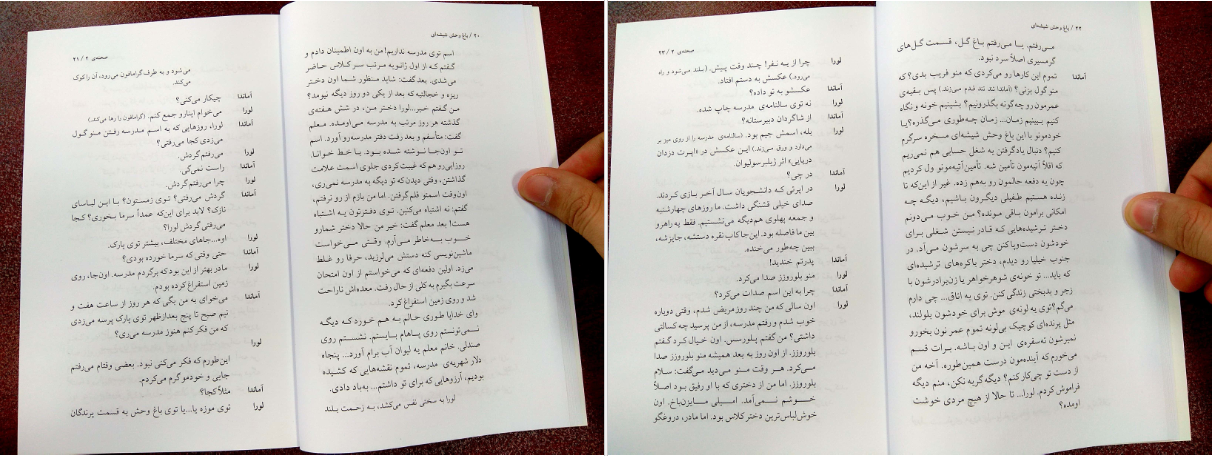 ۲۰ / باغ وحش شیشه‌ای
اسم توی مدرسه نداریم! من به اون اطمینان دادم و
گفتم که از اول ژانویه مرتب سر کلاس حاضر
می‌شدی. بعد گفت: شاید منظور شما اون دختر
ریزه و خجالتیه که بعد از یکی دو روز دیگه نیومد؟
من گفتم خیر... لورا دختر من، در شش هفته‌ی
گذشته هر روز مرتب به مدرسه می‌اومده. معلم
گفت: متأسفم و بعد رفت دفتر مدرسه رو آورد. اسم
تو اون‌جا نوشته شده بود. با خط خوانا.
روزایی رو هم که غیبت کردی جلوی اسمت علامت
گذاشتن، وقتی دیدن که تو دیگه به مدرسه نمی‌ری،
اون‌وقت اسمتو قلم گرفتن. اما من بازم از رو نرفتم،
گفتم: نه اشتباه می‌کنین. توی دفترتون یه اشتباه
هست! بعد معلم گفت: خیر من حالا دختر شما رو
خوب به خاطر می‌آرم. وقتی می‌خواست
ماشین‌نویسی کنه دستش می‌لرزید، حرفا رو غلط
می‌زد. اولین دفعه‌ای که می‌خواستم از اون امتحان
سرعت بگیرم به کلی از حال رفت. معده‌اش ناراحت
شد و روی زمین استفراغ کرد.
وای خدایا طوری حالم به هم خورد که دیگه
نمی‌تونستم روی پاهام بایستم. نشستم روی
صندلی. خانم معلم یه لیوان آب برام آورد... پنجاه
دلار شهریه‌ی مدرسه، تموم نقشه‌هایی که کشیده
بودیم. آرزوهایی که برای تو داشتم... به‌باد دادی.
لورا به سختی نفس می‌کشد، به زحمت بلند
صحنه‌ی ۲ / ۲۱
می‌شود و به طرف گرامافون می‌رود، آن را کوک
می‌کند.
آماندا چیکار می‌کنی؟
لورا می‌خوام اینارو جمع کنم. (گرامافون را رها می‌کند.)
آماندا لورا، روزهایی که به اسم مدرسه رفتن منو گول
می‌زدی کجا می‌رفتی؟
لورا می‌رفتم گردش.
آماندا راست نمی‌گی.
لورا چرا می‌رفتم گردش.
آماندا گردش می‌رفتی؟ توی زمستون؟ با این لباسای
نازک؟ لابد برای این‌که عمداً سرما بخوری؟ کجا
می‌رفتی گردش لورا؟
لورا اوه... جاهای مختلف، بیشتر توی پارک.
آماندا حتی وقتی که سرما خورده بودی؟
لورا مادر بهتر از این بود که برگردم مدرسه. اون‌جا، روی
زمین استفراغ کرده بودم.
آماندا می‌خوای به من بگی که هر روز از ساعت هفت و
نیم صبح تا پنج بعدازظهر توی پارک پرسه می‌زدی
که من فکر کنم هنوز مدرسه می‌ری؟
لورا این‌طورم که فکر می‌کنی نبود. بعضی وقتام می‌رفتم
جایی و خودمو گرم می‌کردم.
آماندا مثلاً کجا؟
لورا توی موزه یا... یا توی باغ وحش به قسمت پرندگان
۲۲ / باغ وحش شیشه‌ای
می‌رفتم، یا می‌رفتم باغ گل، قسمت گل‌های
گرمسیری اصلاً سرد نبود.
آماندا تموم این کارها رو می‌کردی که منو فریب بدی؟ که
منو گول بزنی؟ (آماندا تند تند قدم می‌زند.) پس بقیه‌ی
عمرمون رو چه‌گونه بگذرونیم؟ بشینیم خونه و نگاه
کنیم ببینیم زمان... زمان چه‌طوری می‌گذره؟ یا
خودمونو با این باغ وحش شیشه‌ای مسخره سرگرم
کنیم؟ دنبال یادگرفتن یه شغل حسابی هم نمی‌ریم
که اقلاً آتیه‌مون تأمین شه. تأمین آتیه‌مونو ول کردیم
چون یه دفعه حالمون رو به‌هم زده. غیر از این‌که تا
زنده هستیم طفیلی دیگرون باشیم، دیگه چه
امکانی برامون باقی مونده؟ من خوب می‌دونم
دختر ترشیده‌هایی که قادر نیستن شغلی برای
خودشون دست‌وپا کنن چی به سرشون می‌آد. در
جنوب خیلیا رو دیدم، دختر باکره‌های ترشیده‌ای
که باید... تو خونه‌ی شوهرخواهر یا زن‌برادرشون با
زجر و بدبختی زندگی کنن. توی یه اتاق... چی دارم
می‌گم؟ توی یه لونه‌ی موش برای خودشون بلولند،
مثل پرنده‌ای کوچیک بی‌لونه تموم عمر نون بخورو
نمیرشون ته‌سفره‌ی این و اون باشه. برات قسم
می‌خورم که آینده‌مون درست همین‌طوره. آخه من
از دست تو چی‌کار کنم؟ دیگه گریه نکن، منم دیگه
فراموش کردم. لورا... تا حالا از هیچ مردی خوشت
اومده؟
صحنه‌ی ۲ / ۲۳
لورا چرا از یه نفر! چند وقت پیش. (بلند می‌شود و راه
می‌رود.) عکسش به دستم افتاد.
آماندا عکسشو به تو داده؟
لورا نه توی سالنامه‌ی مدرسه چاپ شده.
آماندا از شاگردان دبیرستانه؟
لورا بله، اسمش جیم بود. (سالنامه‌ی مدرسه را از روی میز بر
می‌دارد و ورق می‌زند.) این عکسش در «اپرت دزدان
دریایی» اثر ژیلبرسولیوان.
آماندا در چی؟
لورا در اپرتی که دانشجویان سال آخر بازی کردند.
صدای خیلی قشنگی داشت. ما روزهای چهارشنبه
و جمعه پهلوی هم‌دیگه می‌نشستیم. فقط یه راهرو
بین ما فاصله بود. این‌جا کاپ نقره دستشه، جایزشه،
ببین چه‌طور می‌خنده.
آماندا پدرتو خندید!
لورا منو بلوروزز صدا می‌کرد.
آماندا چرا به این اسم صدات می‌کرد؟
لورا اون سالی که من چند روز مریض شدم، وقتی دوباره
خوب شدم و رفتم مدرسه، از من پرسید چه کسالتی
داشتی؟ من گفتم پلورسس. اون خیال کرد گفتم
بلوروزز. از اون روز به بعد همیشه منو بلوروزز صدا
می‌کرد. هر وقت منو می‌دید می‌گفت: سلام
بلوروزز. اما من از دختری که با او رفیق بود اصلاً
خوشم نمی‌آمد. امیلی مایزن‌باخ. اون
خوش‌لباس‌ترین دختر کلاس بود. اما مادر، دروغگو